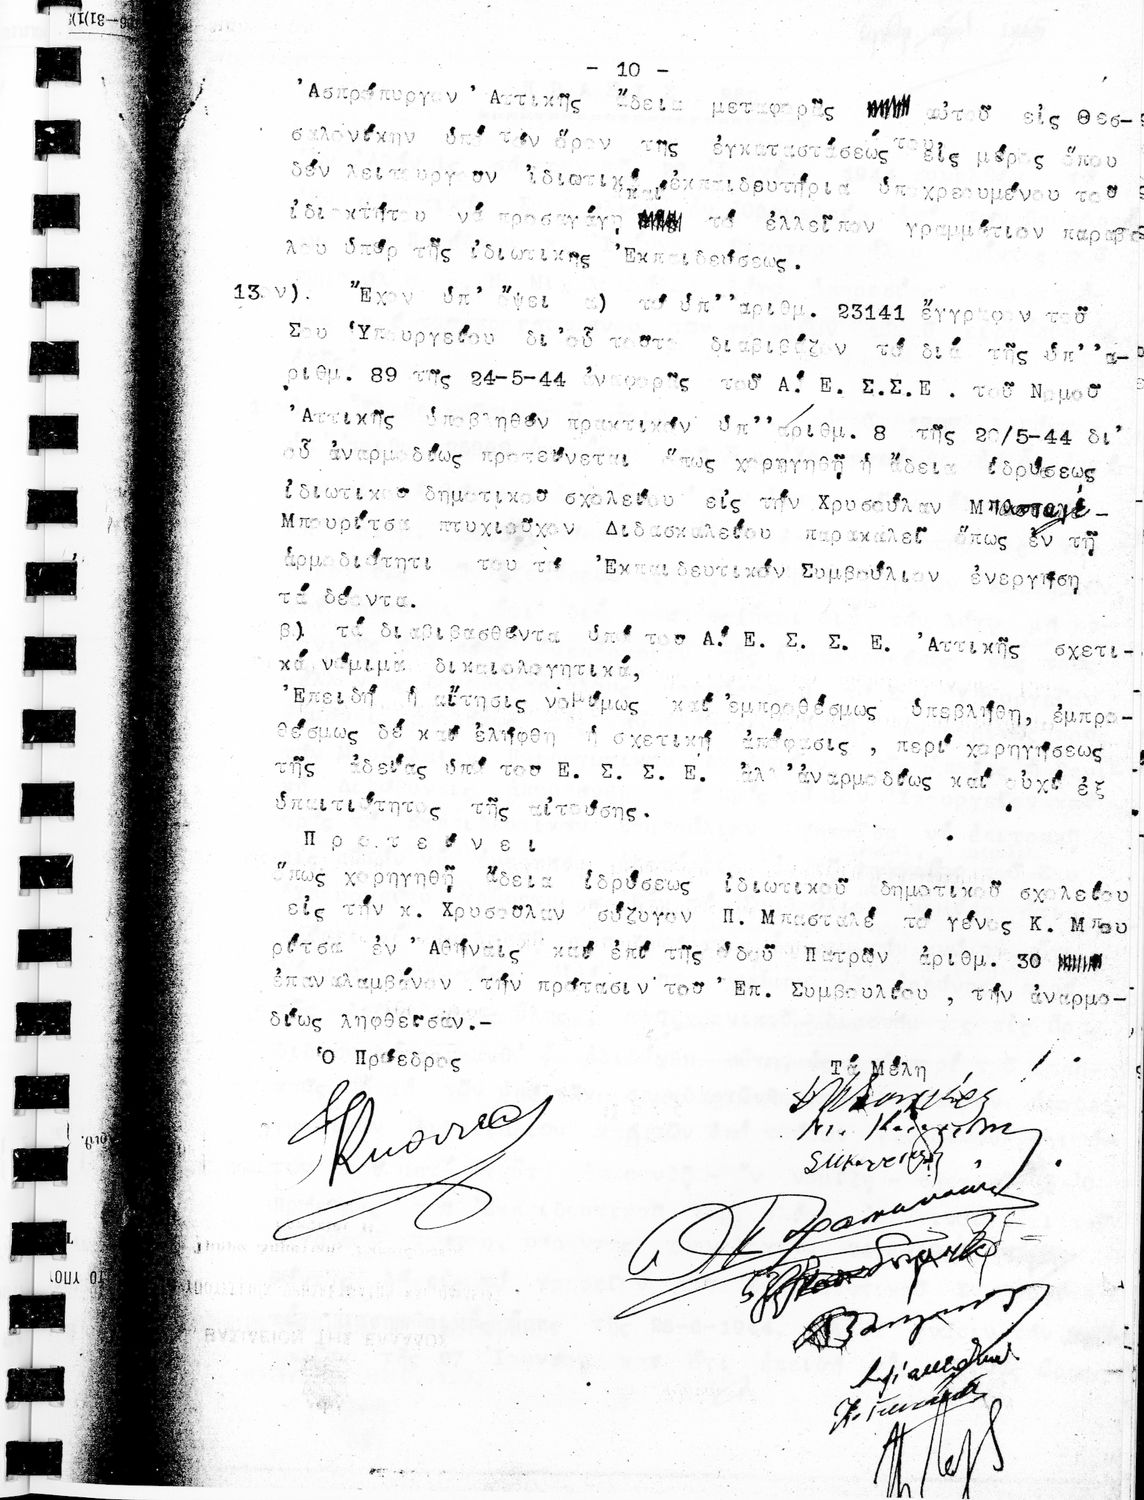 - 10 -
Ἀσπρόπυργον Ἀττικῆς ἄδεια μεταφορᾶς αὐτοῦ εἰς Θεσ-
σαλονίκην ὑπό τόν ὅρον τῆς ἐγκαταστάσεώς του εἰς μέρος ὅπου
δέν λειτουργοῦν ἰδιωτικά ἐκπαιδευτήρια ὑποχρεουμένου τοῦ
καί
ἰδιοκτήτου νά προσαγάγῃ τό ἐλλεῖπον γραμμάτιον παραβό
λου ὑπέρ τῆς ἰδιωτικῆς Ἐκπαιδεύσεως.
13 ν). Ἔχον ὑπ' ὄψει α) τό ὑπ''αριθμ. 23141 ἔγγραφον τοῦ
Σου Ὑπουργείου δι'οὗ τοῦτο διαβιβάζον τό διά τῆς ὑπ''α-
ριθμ. 89 τῆς 24-5-44 ἀναφορᾶς τοῦ Α. Ε. Σ.Σ.Ε . τοῦ Νομοῦ
Ἀττικῆς ὑποβληθέν πρακτικόν ὑπ''άριθμ. 8 τῆς 20/5-44 δι'
οὗ ἀναρμοδίως προτείνεται ὅπως χορηγηθῇ ἡ ἄδεια ἱδρύσεως
ἰδιωτικοῦ δημοτικοῦ σχολείου εἰς τήν Χρυσούλαν Μπασταλέ -
Μπουρίτσα πτυχιοῦχον Διδασκαλείου παρακαλεῖ ὅπως ἐν τῇ
ἁρμοδιότητι του τό Ἐκπαιδευτικόν Συμβούλιον ἐνεργήσῃ
τά δέοντα.
β) τά διαβιβασθέντα ὑπό του Α. Ε. Σ. Σ. Ε. Ἀττικῆς σχετι-
κά νόμιμα δικαιολογητικά,
Ἐπειδή ἡ αἴτησις νομίμως καί ἐμπροθέσμως ὑπεβλήθη, ἐμπρο-
θέσμως δέ καί ἐλήφθη ἡ σχετική ἀπόφασις , περί χορηγήσεως
τῆς ἀδείας ὑπό του Ε. Σ. Σ. Ε. ἀλ' ἀναρμοδίως καί οὐχί ἐξ
ὑπαιτιότητος τῆς αἰτούσης.
Π ρ ο τ ε ί ν ε ι
ὅπως χορηγηθῇ ἄδεια ἱδρύσεως ἰδιωτικοῦ δημοτικοῦ σχολείου
εἰς τήν κ. Χρυσούλαν σύζυγον Π. Μπασταλέ τό γένος Κ. Μπου
ρίτσα ἐν Ἀθήναις καί ἐπί τῆς ὁδοῦ Πατρῶν ἀριθμ. 30
ἐπαναλαμβάνον τήν πρότασιν του Ἐπ. Συμβουλίου , τήν ἀναρμο-
δίως ληφθεῖσάν.-
Ὁ Πρόεδρος
Τά Μέλη